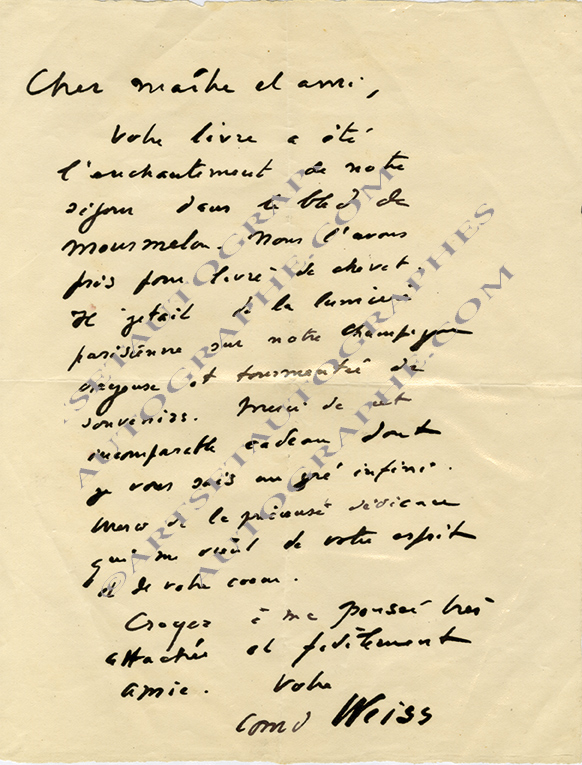 Cher maître et ami,
Votre livre a été
l'enchantement de notre
séjour dans le bled de
Mourmelon. Nous l'avons
pris pour livre de chevet.
Il jetait de la lumière
parisienne sur notre Champagne
crayeuse et tourmentée de
souvenirs. Merci de cet
incomparable cadeau dont
je vous sais un gré infini.
Merci de la précieuse dédicace
qui me vient de votre esprit
et de votre coeur.
Croyez à ma pensée très
attachée et fidèlement
amie. Votre
Weiss
©ARTSETAUTOGRAPHES
AUTOGRAPHE.COM